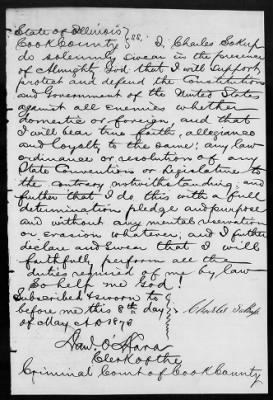 State of Illinois
Cook County } ss. I, Charles Sokup
do solemnly swear in the presence
of Almighty God that I will support,
protect and defend the Constitution
and Government of the United States
against all enemies whether
domestic or foreign, and that
I will bear true faith, allegiance
and loyalty to the same; any law
ordinance or resolution of any
State Convention or Legislature to
the contrary notwithstanding; and
further that I do this with a full
determination, pledge and purpose
and without any mental reservation
or evasion whatever; and I further
declare and swear that I will
faithfully perform all the
duties required of me by law
So help me God!
Subscribed & sworn to
before me this 8th day
of May A D 1878
Charles
O'Hara
Clerk of the
Criminal Court of Cook County